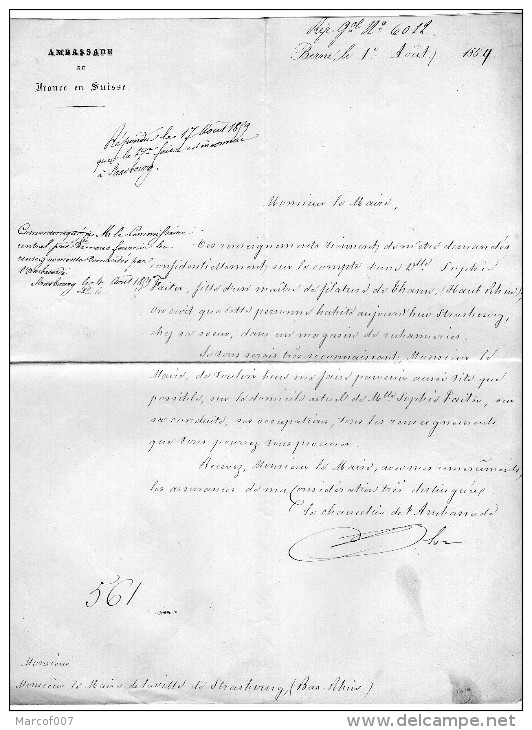 Rép. Gal No 6012
AMBASSADE
DE
France en Suisse.
Berne, le 1er Août 1859
Répondu le 17 Août 1859
que la dlle est inconnue
à Strasbourg.
Monsieur le Maire,
Communiqué à M. le Commissaire
central, prié de nous fournir les
renseignements demandés par
l'Ambassade
Strasbourg le Août 1859
Des renseignements viennent de m'être demandés
confidentiellement, sur le compte d'une Dlle Sophie
Faiter, fille d'un maître de filature de Thann, (Haut Rhin)
on croit que cette personne habite aujourd'hui Strasbourg,
chez sa soeur, dans un magasin de rubanneries.
Je vous serais très reconnaissant, Monsieur le
Maire, de vouloir bien me faire parvenir aussi vite que
possible, sur le domicile actuel de Mlle Sophie Faiter, sur
sa conduite, ses occupations, tous les renseignements
que vous pourrez vous procurer.
Recevez, Monsieur le Maire, avec mes remerciments,
les assurances de ma considération très distinguée
Le chancelier de l'Ambassade
561
Monsieur
Monsieur le Maire de la ville de Strasbourg, (Bas-Rhin)
Marcof007
www.delcampe.net